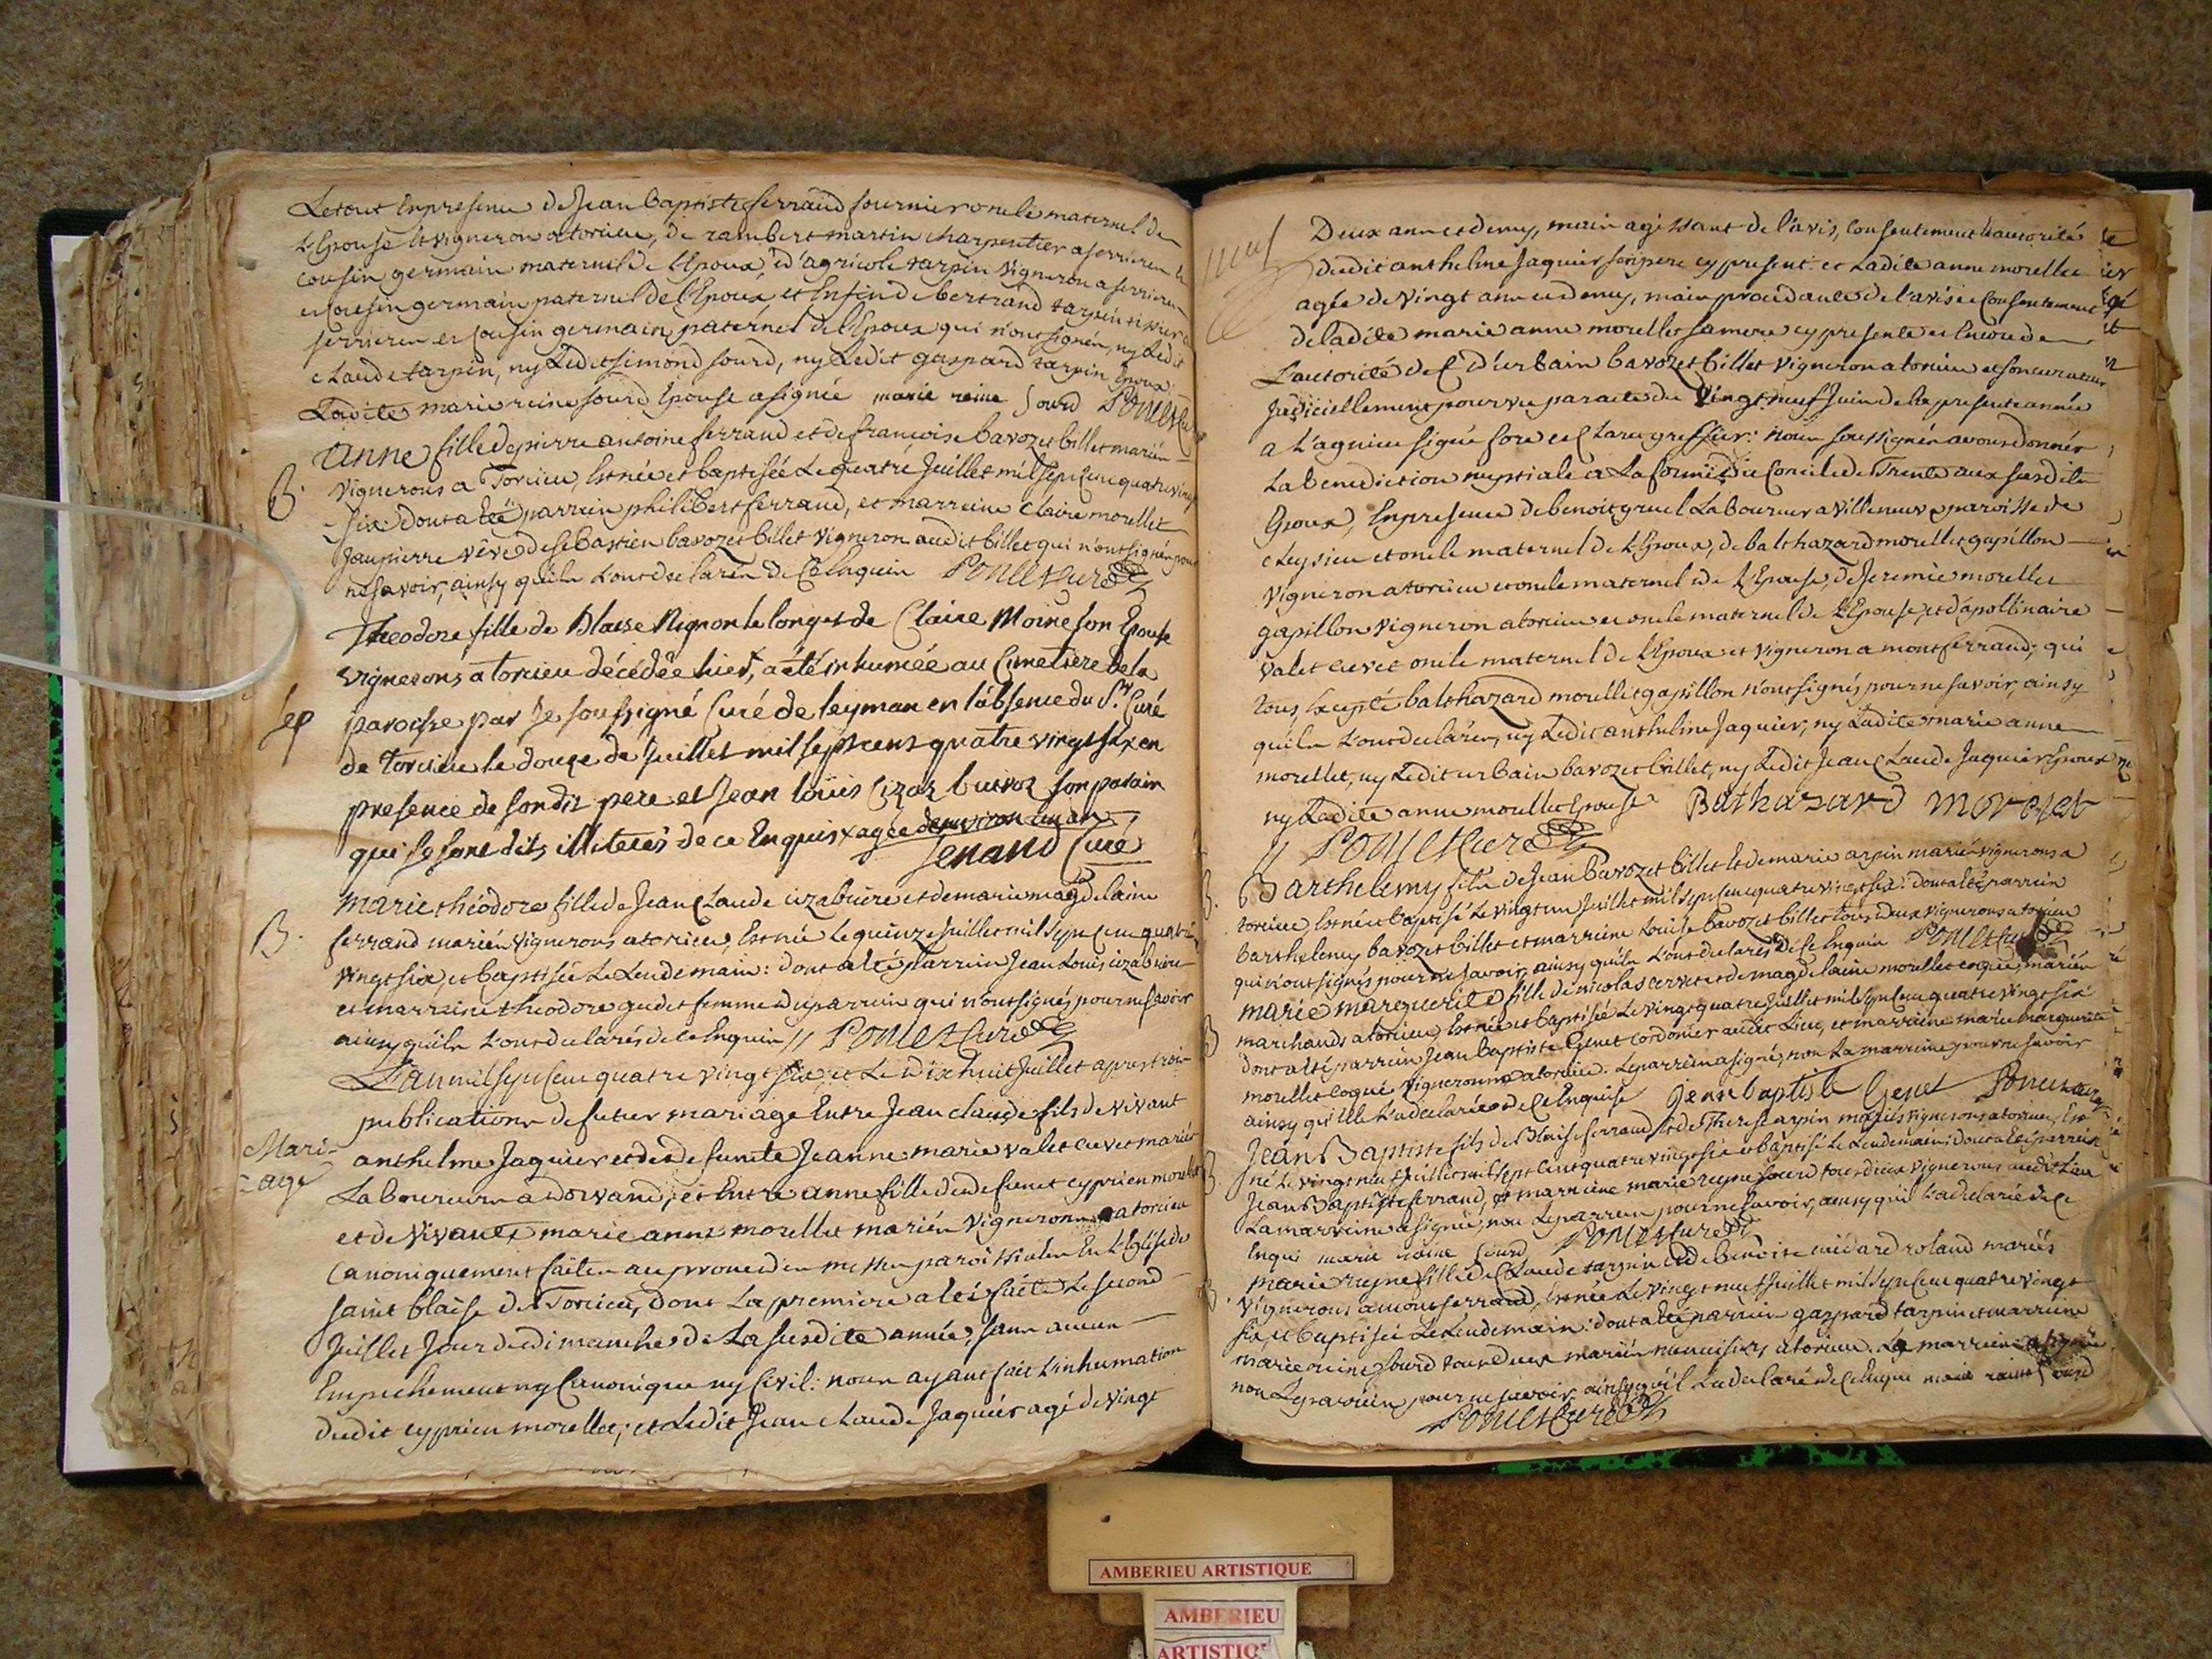 Le tout En presence de Jean baptiste ferrand fournier oncle maternel de
L'Epouse et vigneron a torcieu, de rambert martin charpentier a serrieren
cousin germain maternel de L'Epoux, d'agricole tarpin vigneron a serrieren
cousin germain paternel de l'Epoux et Enfin de bertrand tarpin
serrieren et cousin germain paternel de l'Epoux qui n'ont signén, ny Ledit
claude tarpin, ny Ledit simond sourd, ny Ledit gaspard tarpin Epoux
Ladite marie reine sourd Epouse a signée marie reine sourd Poncet
Anne fille de pierre antoine ferrand et de francoise bavozet billet marién
B.
vignerons a Torcieu, Est née et baptisée Le quatre Juillet mil sept cent quatre vingt
six: dont a été parrein philibert ferrand, et marreine claire morellet
Jaupierre vêve de sebastien bavozet billet vigneron audit billet qui n'ont signén pour
ne savoir, ainsy quiln L'ont declarén de ce Enquin Poncet Curé
Theodore fille de Blaise Mignon le long et de Claire Moine son Epouse
vignerons a torcieu décédée hier, a été inhumée au Cimetière de la
Sep
paroisse par Je soussigné Curé de leyman en l'absence du Sr. Curé
de Torcieu le douze de Juillet mil sept cens quatre vingt six en
presence de son dit pere et Jean loüis Cizaz buiroz son parain
qui se sont dits illiterés de ce Enquis x agée denviron un an
Jenand Curé
Marie théodore fille de Jean Claude cizabuire et de marie magdelaine
B.
ferrand marién vignerons a torcieu, Est née Le quinze Juillet mil sept cent quatre
vingt six, et baptisée Le Lendemain: dont a été parrein Jean Louis cizabuire
et marreine theodore gudet femme du parrein qui n'ont signés pour ne savoir
ainsy quiln L'ont declarés de ce Enquin // Poncet Curé
L'an mil sept cent quatre vingt six, et Le dix huit Juillet apres trois
publications de futur mariage Entre Jean claude fils de vivant
Mari-
-age
anthelme Jaquier et de defunte Jeanne marie valet cuvet mariés
Laboureurs a dorvand, et Entre anne fille de defunct cyprien morellet
et de vivante marie anne morellet marién vignerons a torcieu
Canoniquement faiten au prone den messen paroissialen En L'Eglise de
saint blaise de Torcieu, dont La premiere a été faite Le second
Juillet Jour de dimanche de La susdite année, sann aucun
Empechement ny Canonique ny Civil: noun ayant fait L'inhumation
dudit cyprien morellet; et Ledit Jean claude Jaquier agé de vingt
Deux ann et demy, main agissant de l'avis, consentement et autorité
dudit anthelme Jaquier son pere cy present: et Ladite anne morellet
agée de vingt ann et demy, main procedante de l'avis et consentement
de ladite marie anne morellet sa mere cy presente et Encore de
L'autorité de Sr. D'urbain bavozet billet vigneron a torcieu et son curateur
Judiciellement pourvu par acte du vingt neuf Juin de la presente année
a L'agnieu signé greffier: noun soussignén avons donnén
La benediction nuptiale a La forme du Concile de Trente aux susdits
Epoux, En presence de benoit gruel Laboureur a villeneuve paroisse de
cleysieu et oncle maternel de L'Epoux, de balthazard morellet gapillon
vigneron a torcieu et oncle maternel de L'Epouse, de Jeremie morellet
gapillon vigneron a torcieu et oncle maternel de L'Epouse, et d'apollinaire
valet cuvet oncle maternel de L'Epoux et vigneron a montferrand; qui
tous, Excepté balthazard morellet gapillon n'ont signés pour ne savoir, ainsy
quiln L'ont declarén, ny Ledit anthelme Jaquier, ny Ladite marie anne
morellet, ny Ledit urbain bavozet billet, ny Ledit Jean Claude Jaquier Epoux
ny Ladite anne morellet Epouse Bathazard morelet
// Poncet Curé
B.
Barthelemy fils de Jean bavozet billet Et de marie arpin mariés vignerons a
torcieu, Est né et baptisé Le vingt un Juillet mil sept cent quatre vingt six: dont a été parrein
barthelemy bavozet billet et marreine Louise bavozet billet tous deux vignerons a torcieu
qui n'ont signés pour ne savoir, ainsy quiln L'ont declarés de ce Enquin Poncet Curé
B
marie marguerite fille de nicolas cervet et de magdelaine morellet coque, mariés
marchands a torcieu, Est née et baptisée Le vingt quatre Juillet mil sept cent quatre vingt six
dont a été parrein Jean baptiste Genet cordonier audit Lieu, et marreine marie marguerite
morellet coque vigneronne a torcieu. Le parrein a signé, non La marreine pour ne savoir
ainsy qu'elle L'a declarée de ce Enquise Jean baptiste Genet Poncet Curé
B.
Jean Baptiste fils de Blaise ferrand et de Therese arpin mariés vignerons a torcieu, Est
né Le vingt neuf Juillet mil sept cent quatre vingt six et baptisé Le Lendemain: dont a été parrein
Jean Baptiste ferrand, et marreine marie reyne sourd tous deux vignerons audit Lieu
La marreine a signée, non Le parrein pour ne savoir, ainsy quil L'a declaré de ce
Enqui marie reine sourd Poncet Curé
B
marie reyne fille de Claude tarpin et de benoite midard roland mariés
vignerons a montferrand, Est née Le vingt neuf Juillet mil sept cent quatre vingt
six, et baptisée Le Lendemain: dont a été parrein gaspard tarpin et marreine
marie reine sourd tous deux mariés menuisiers a torcieu. La marreine a signée
non Le parrein pour ne savoir, ainsy quil L'a declaré de ce Enqui marie reine sourd
Poncet Curé
AMBERIEU ARTISTIQUE
AMBERIEU
ARTISTIQ